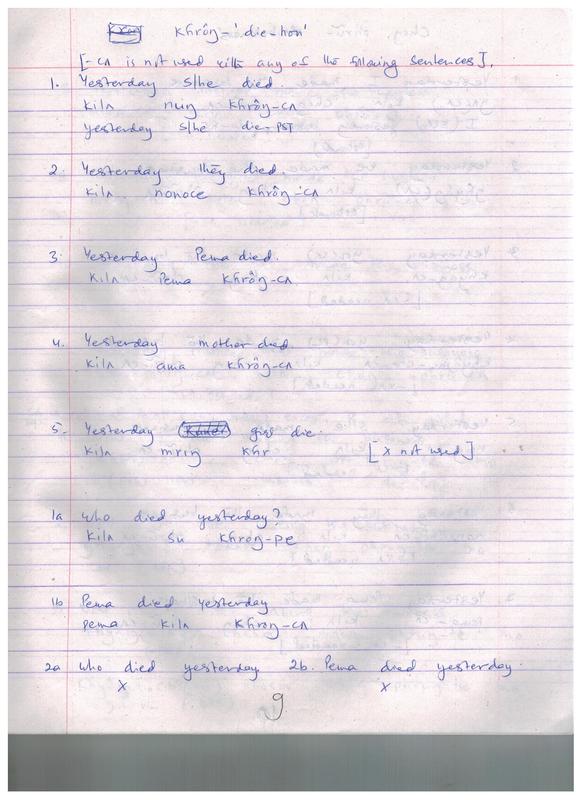 khrôŋ- 'die-hon'
[-cʌ is not used with any of the following sentences].
1. Yesterday s/he died.
kilʌ nuiŋ khrôŋ-cʌ
yesterday s/he die-PST
2. Yesterday they died.
kilʌ nonoce khrôŋ-cʌ
3. Yesterday Pema died.
kilʌ Pema khrôŋ-cʌ
4. Yesterday mother died.
kilʌ ama khrôŋ-cʌ
5. Yesterday girl die.
kilʌ mriŋ khr [x not used]
1a who died yesterday?
kilʌ su khroŋ-pe
1b Pema died yesterday
pema kilʌ khroŋ-cʌ
2a who died yesterday 2b. Pema died yesterday.
x x
9